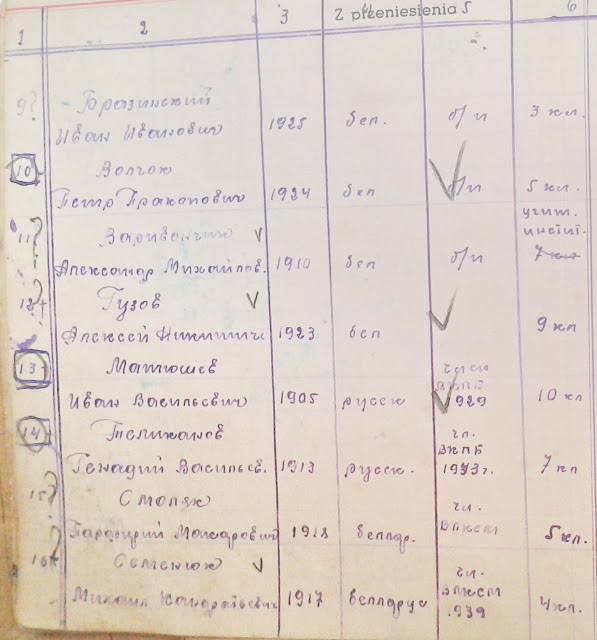 Z przeniesienia
1 2 3 4 5 6
9?
Бразинский
Иван Иванович 1925 бел. б/п 3 кл.
10 Волчок
Петр Пракопович 1924 бел б/п 5 кл.
11
учит.
инстит.
Александр Михайлов. 1910 бел б/п 7 кл
12 Гузов
Алексей Никитич 1923 бел 9 кл
13 Матюшев
Иван Васильевич 1905 русск ВКПБ 1929 10 кл
14 Телиханов чл.
ВКПБ
Генадий Васильев. 1913 русск. 1943г. 7 кл
15 Смоляк чл.
Макарович 1918 белдар. ВЛКСМ 5 кл.
16 Семенюк чл.
ВЛКСМ
Михаил 1917 белларус 1939 4 кл.